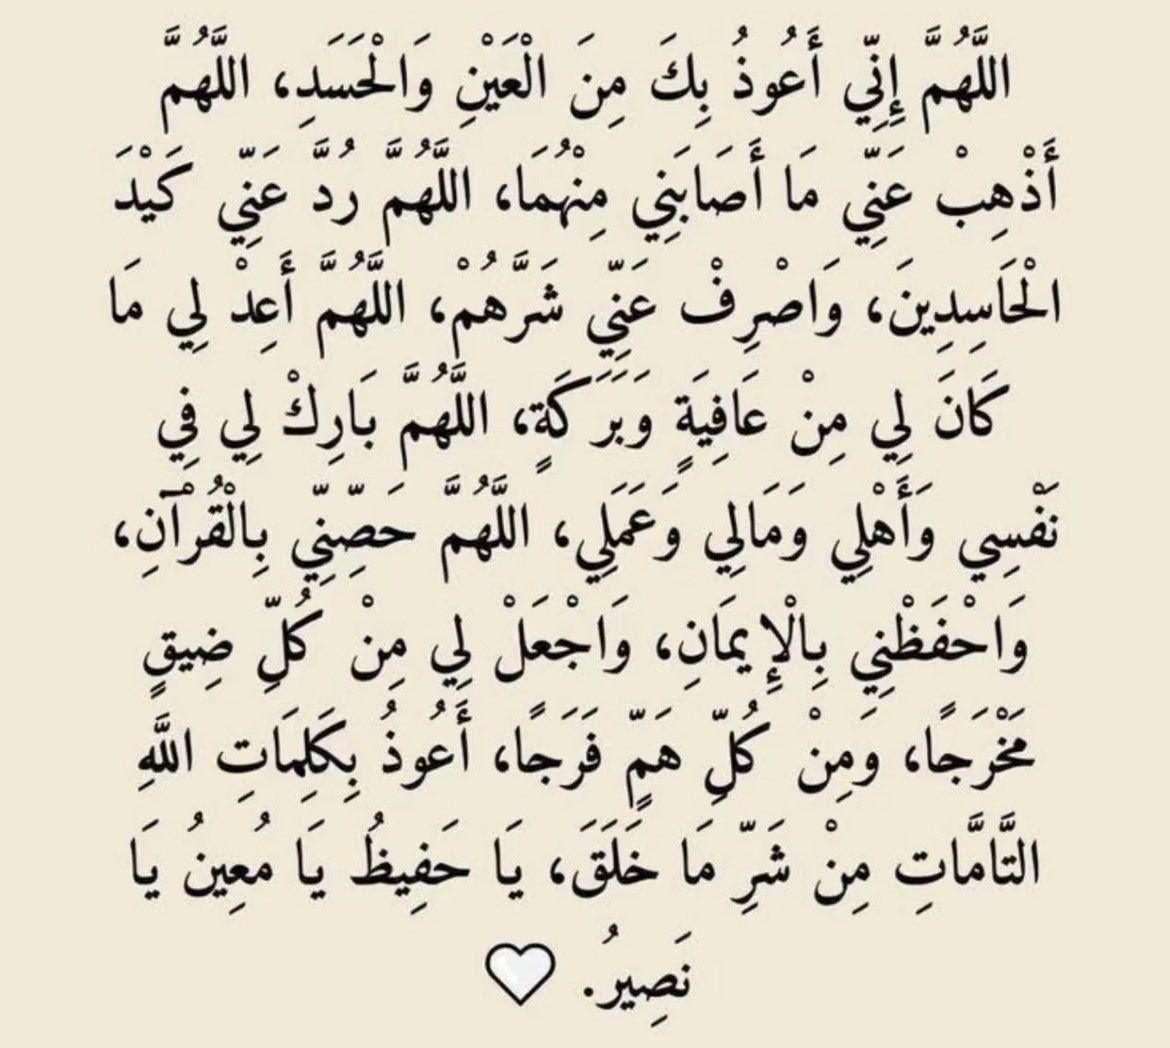 اللَّهُمَّ إِنِّي أَعُوذُ بِكَ مِنَ الْعَيْنِ وَالْحَسَدِ، اللَّهُمَّ
أَذْهِبْ عَنِّي مَا أَصَابَنِي مِنْهُمَا، اللَّهُمَّ رُدَّ عَنِّي كَيْدَ
الْحَاسِدِينَ، وَاصْرِفْ عَنِّي شَرَّهُمْ، اللَّهُمَّ أَعِدْ لِي مَا
كَانَ لِي مِنْ عَافِيَةٍ وَبَرَكَةٍ، اللَّهُمَّ بَارِكْ لِي فِي
نَفْسِي وَأَهْلِي وَمَالِي وَعَمَلِي، اللَّهُمَّ حَصِّنِّي بِالْقُرْآنِ،
وَاحْفَظْنِي بِالْإِيمَانِ، وَاجْعَلْ لِي مِنْ كُلِّ ضِيقٍ
مَخْرَجًا، وَمِنْ كُلِّ هَمٍّ فَرَجًا، أَعُوذُ بِكَلِمَاتِ اللَّهِ
التَّامَّاتِ مِنْ شَرِّ مَا خَلَقَ، يَا حَفِيظُ يَا مُعِينُ يَا
نَصِيرُ. 🤍